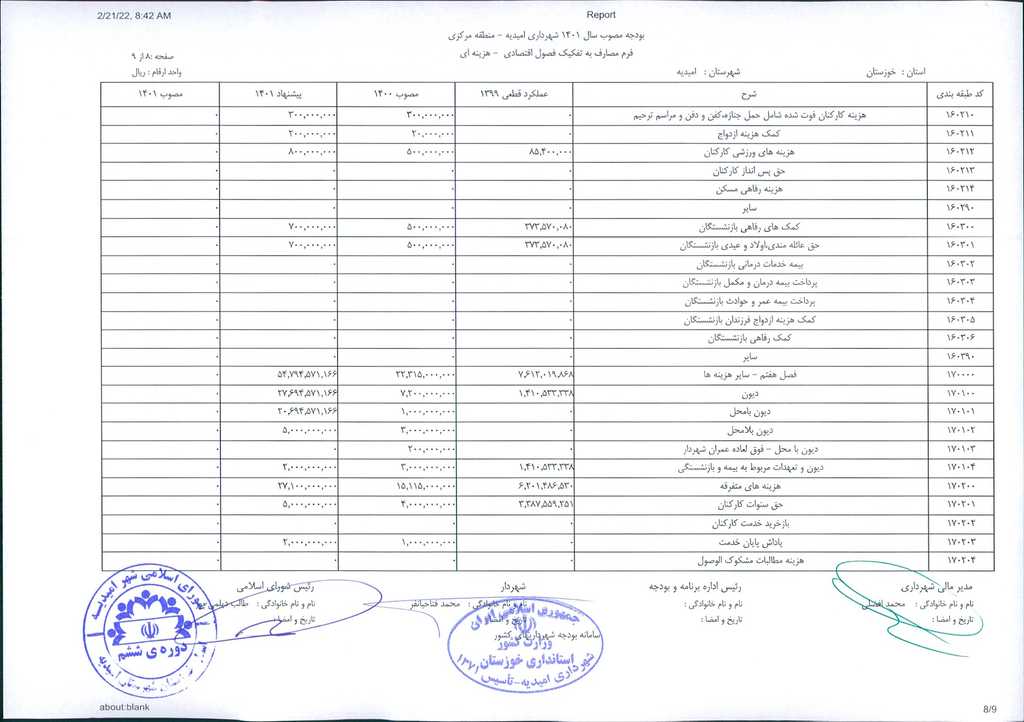 2/21/22, 8:42 AM Report
بودجه مصوب سال ۱۴۰۱ شهرداری امیدیه - منطقه مرکزی
فرم مصارف به تفکیک فصول اقتصادی - هزینه ای
صفحه :۸ از ۹
استان : خوزستان شهرستان : امیدیه واحد ارقام : ریال
کد طبقه بندی شرح عملکرد قطعی ۱۳۹۹ مصوب ۱۴۰۰ پیشنهاد ۱۴۰۱ مصوب ۱۴۰۱
۱۶۰۲۱۰ هزینه کارکنان فوت شده شامل حمل جنازه،کفن و دفن و مراسم ترحیم ۰ ۳۰۰,۰۰۰,۰۰۰ ۳۰۰,۰۰۰,۰۰۰ ۰
۱۶۰۲۱۱ کمک هزینه ازدواج ۰ ۲۰,۰۰۰,۰۰۰ ۲۰۰,۰۰۰,۰۰۰ ۰
۱۶۰۲۱۲ هزینه های ورزشی کارکنان ۸۵,۴۰۰,۰۰۰ ۵۰۰,۰۰۰,۰۰۰ ۸۰۰,۰۰۰,۰۰۰ ۰
۱۶۰۲۱۳ حق پس انداز کارکنان ۰ ۰ ۰ ۰
۱۶۰۲۱۴ هزینه رفاهی مسکن ۰ ۰ ۰ ۰
۱۶۰۲۹۰ سایر ۰ ۰ ۰ ۰
۱۶۰۳۰۰ کمک های رفاهی بازنشستگان ۲۷۳,۵۷۰,۰۸۰ ۵۰۰,۰۰۰,۰۰۰ ۷۰۰,۰۰۰,۰۰۰ ۰
۱۶۰۳۰۱ حق عائله مندی،اولاد و عیدی بازنشستگان ۲۷۳,۵۷۰,۰۸۰ ۵۰۰,۰۰۰,۰۰۰ ۷۰۰,۰۰۰,۰۰۰ ۰
۱۶۰۳۰۲ بیمه خدمات درمانی بازنشستگان ۰ ۰ ۰ ۰
۱۶۰۳۰۳ پرداخت بیمه درمان و مکمل بازنشستگان ۰ ۰ ۰ ۰
۱۶۰۳۰۴ پرداخت بیمه عمر و حوادث بازنشستگان ۰ ۰ ۰ ۰
۱۶۰۳۰۵ کمک هزینه ازدواج فرزندان بازنشستگان ۰ ۰ ۰ ۰
۱۶۰۳۰۶ کمک رفاهی بازنشستگان ۰ ۰ ۰ ۰
۱۶۰۳۹۰ سایر ۰ ۰ ۰ ۰
۱۷۰۰۰۰ فصل هفتم - سایر هزینه ها ۷,۶۱۲,۰۱۹,۸۶۸ ۲۲,۳۱۵,۰۰۰,۰۰۰ ۵۴,۷۹۴,۵۷۱,۱۶۶ ۰
۱۷۰۱۰۰ دیون ۱,۴۱۰,۵۳۳,۳۳۸ ۷,۲۰۰,۰۰۰,۰۰۰ ۲۷,۶۹۴,۵۷۱,۱۶۶ ۰
۱۷۰۱۰۱ دیون بامحل ۰ ۱,۰۰۰,۰۰۰,۰۰۰ ۲۰,۶۹۴,۵۷۱,۱۶۶ ۰
۱۷۰۱۰۲ دیون بلامحل ۰ ۳,۰۰۰,۰۰۰,۰۰۰ ۵,۰۰۰,۰۰۰,۰۰۰ ۰
۱۷۰۱۰۳ دیون با محل - فوق لعاده عمران شهردار ۰ ۲۰۰,۰۰۰,۰۰۰ ۰ ۰
۱۷۰۱۰۴ دیون و تعهدات مربوط به بیمه و بازنشستگی ۱,۴۱۰,۵۳۳,۳۳۸ ۳,۰۰۰,۰۰۰,۰۰۰ ۲,۰۰۰,۰۰۰,۰۰۰ ۰
۱۷۰۲۰۰ هزینه های متفرقه ۶,۲۰۱,۴۸۶,۵۳۰ ۱۵,۱۱۵,۰۰۰,۰۰۰ ۲۷,۱۰۰,۰۰۰,۰۰۰ ۰
۱۷۰۲۰۱ حق سنوات کارکنان ۳,۳۸۷,۵۵۹,۲۵۱ ۴,۰۰۰,۰۰۰,۰۰۰ ۵,۰۰۰,۰۰۰,۰۰۰ ۰
۱۷۰۲۰۲ بازخرید خدمت کارکنان ۰ ۰ ۰ ۰
۱۷۰۲۰۳ پاداش پایان خدمت ۰ ۱,۰۰۰,۰۰۰,۰۰۰ ۲,۰۰۰,۰۰۰,۰۰۰ ۰
۱۷۰۲۰۴ هزینه مطالبات مشکوک الوصول ۰ ۰ ۰ ۰
مدیر مالی شهرداری رئیس اداره برنامه و بودجه شهردار رئیس شورای اسلامی
نام و نام خانوادگی : محمد افضلی نام و نام خانوادگی : نام و نام خانوادگی : محمد فتاحیانفر نام و نام خانوادگی : طالب
تاریخ و امضا : تاریخ و امضا : تاریخ و امضا : تاریخ و امضا :
سامانه بودجه شهرداریهای کشور
جمهوری اسلامی ایران
وزارت کشور
استانداری خوزستان
شهرداری امیدیه-تأسیس ۱۳۷۱
شورای اسلامی شهر امیدیه
دوره ی ششم
about:blank 8/9